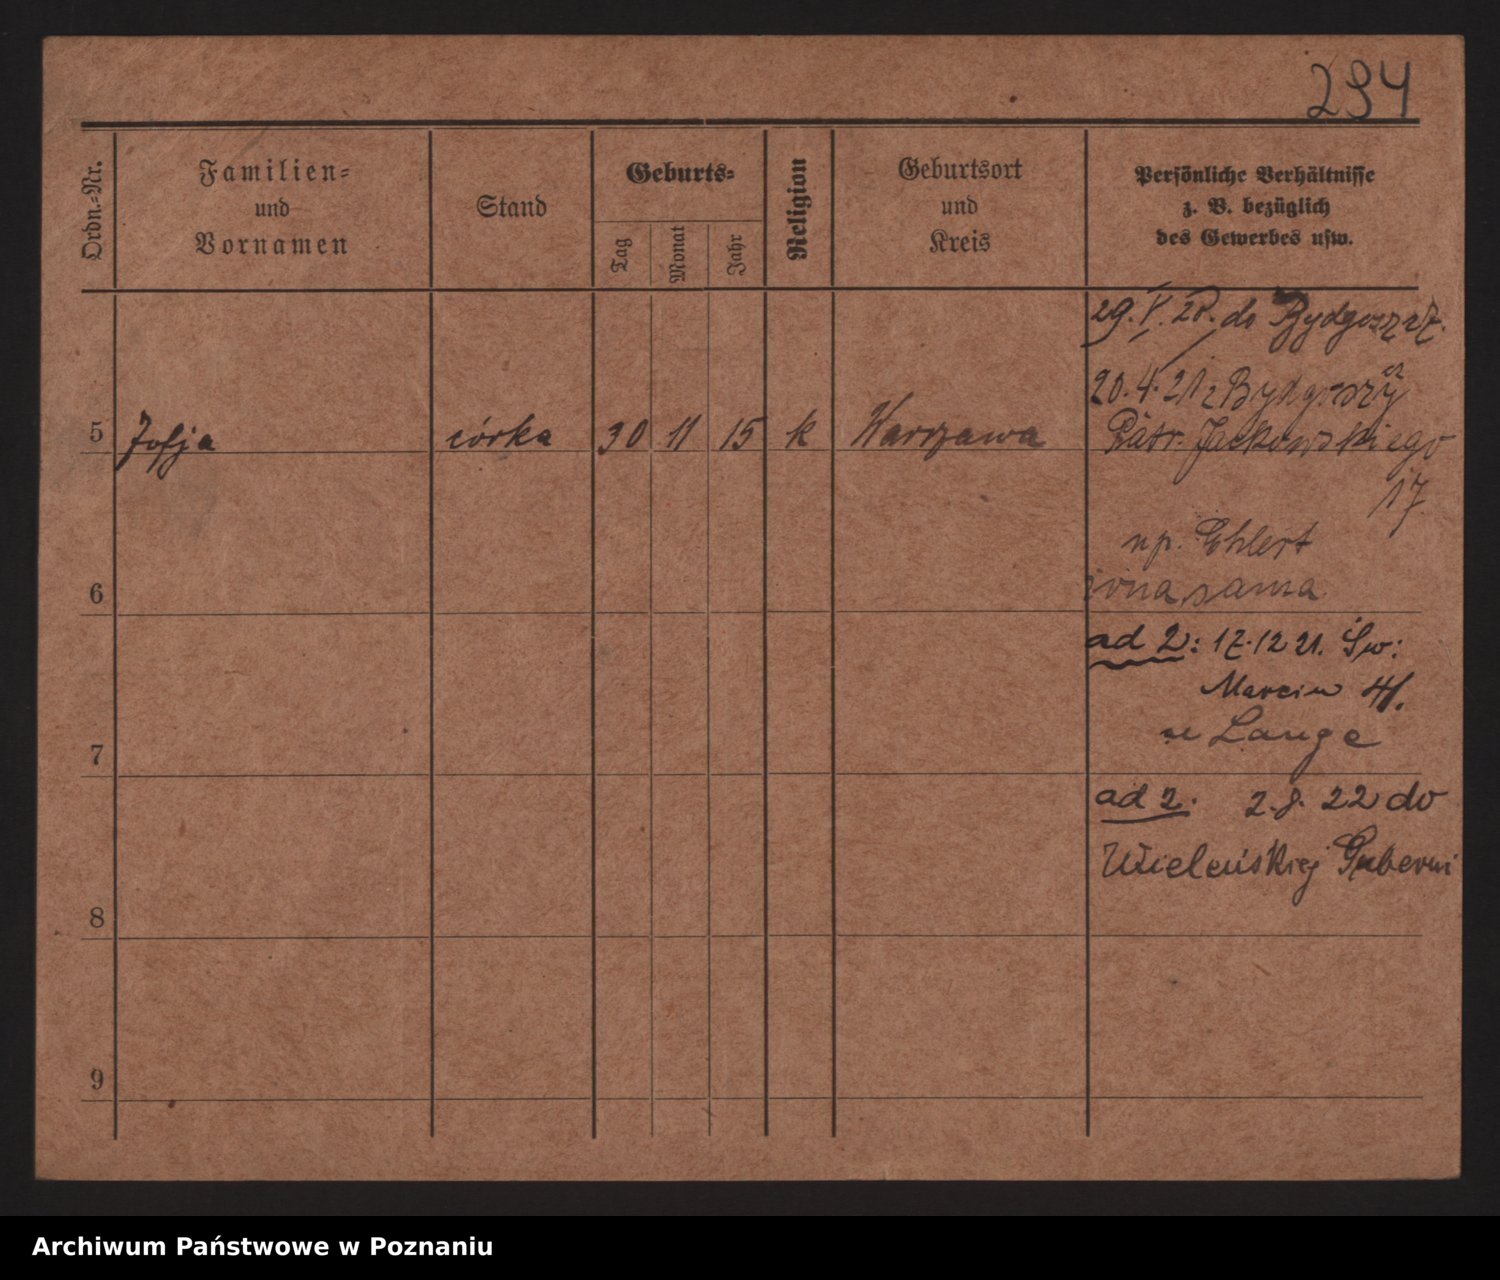 294
Ordn.-Nr.
Familien-
und
Vornamen
Stand
Geburts-
Tag
Monat
Jahr
Religion
Geburtsort
und
Kreis
Persönliche Verhältnisse
z. B. bezüglich
des Gewerbes usw.
29. V. 20. do Bydgoszcz.
20.4.21 z Bydgoszczy
5 Zofja córka 30 11 15 k Warszawa
Patr. Jackowskiego
17
np. Ehlert
żona sama
6
ad 2: 17.12 21. Św:
Marcin 41.
u Lange
7
ad 2. 2.8. 22 do
Wileńskiej Guberni
8
9
Archiwum Państwowe w Poznaniu